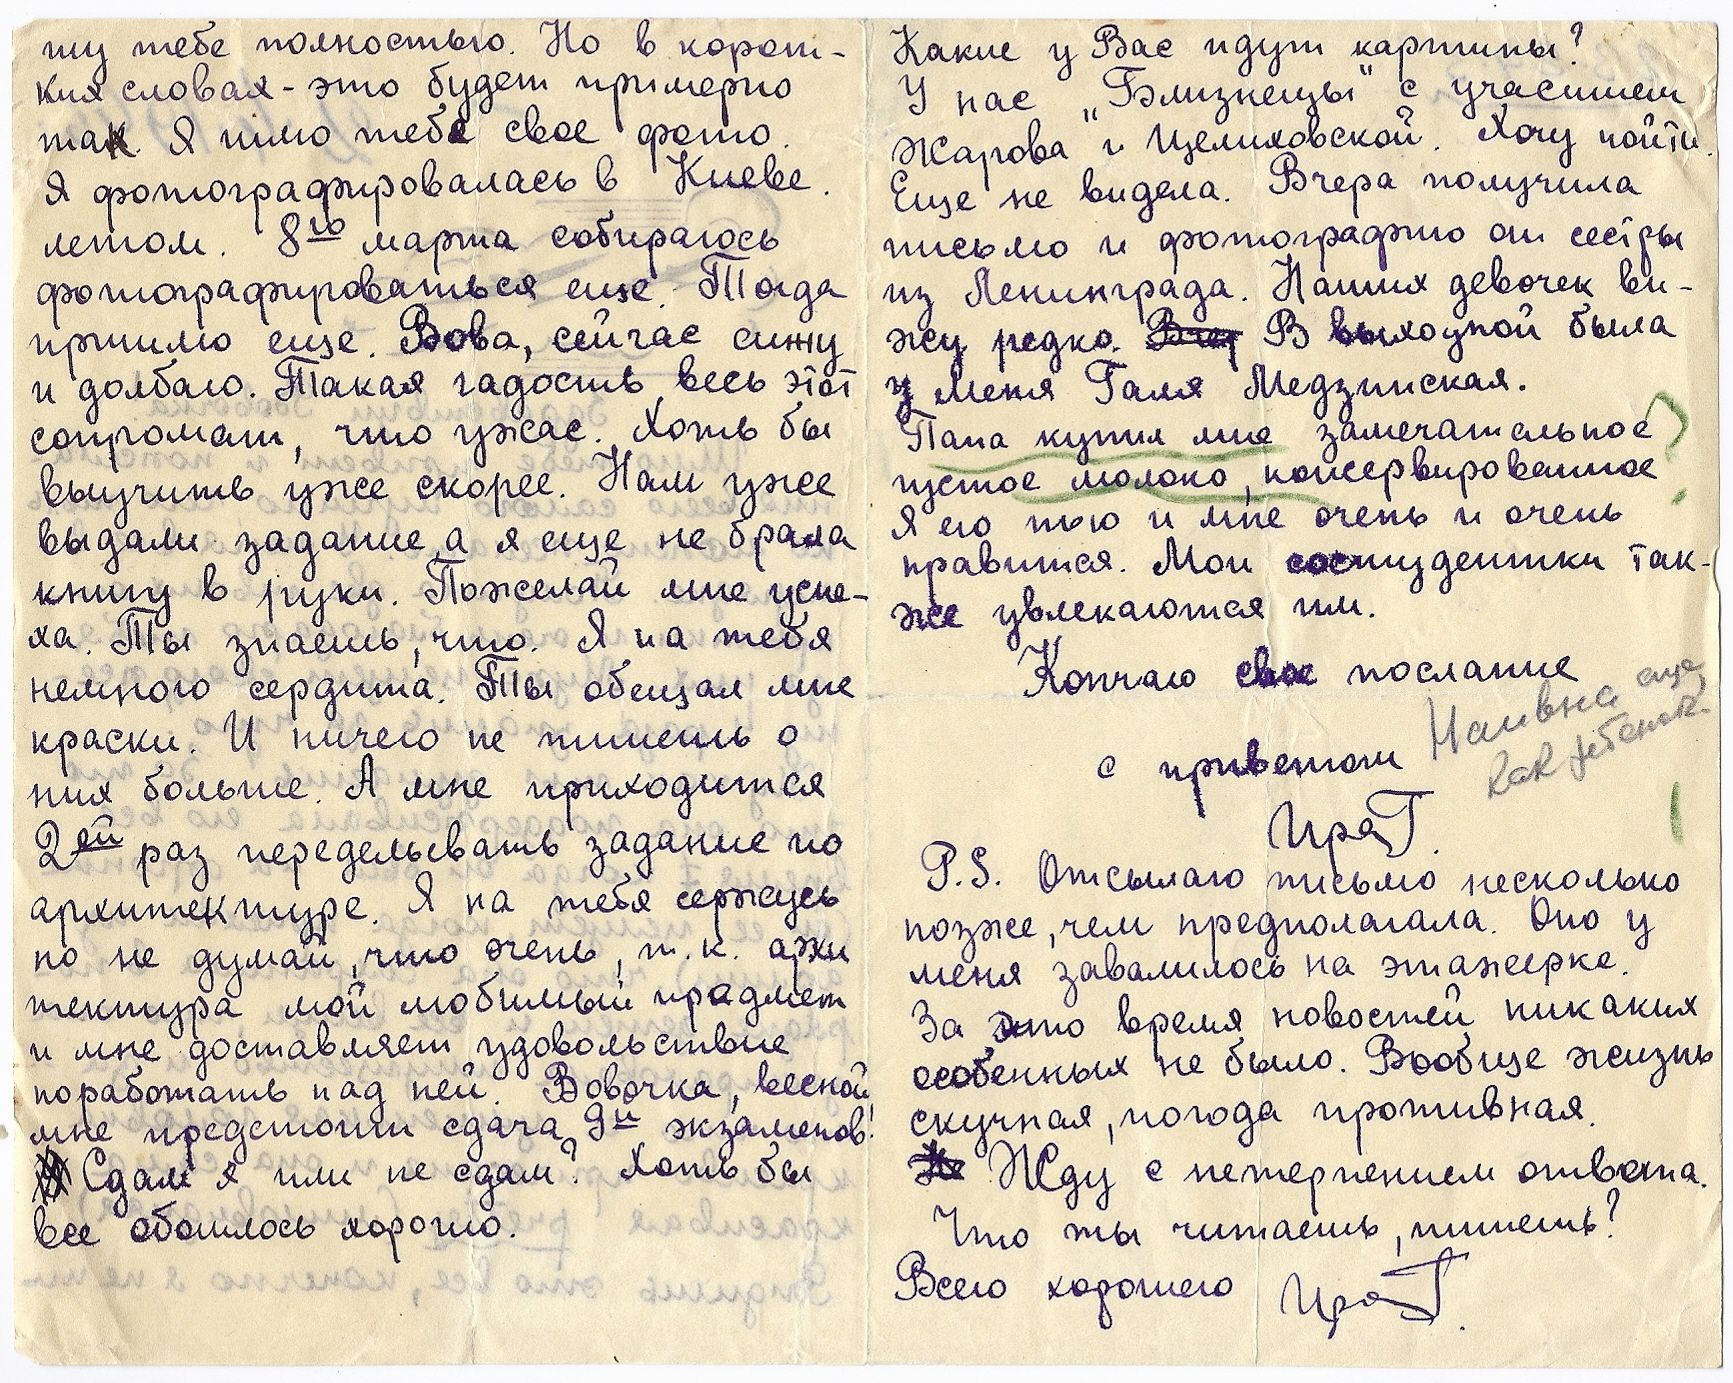 шу тебе полностью. Но в корот-
ких словах - это будет примерно
так. Я шлю тебе свое фото.
Я фотографировалась в Киеве.
летом. 8го марта собираюсь
фотографироваться еще. Тогда
пришлю еще. Вова, сейчас сижу
и долбаю. Такая гадость весь этот
сопромат, что ужас. Хоть бы
выучить уже скорее. Нам уже
выдали задание, а я еще не брала
книгу в руки. Пожелай мне успе-
ха. Ты знаешь, что. Я на тебя
немного сердита. Ты обещал мне
краски. И ничего не пишешь о
них больше. А мне приходится
2ей раз переделывать задание по
архитектуре. Я на тебя сержусь
но не думай, что очень, т.к. архи
тектура мой любимый прадмет
и мне доставляет удовольствие
поработать над ней. Вовочка, весной
мне предстоит сдача 9ти экзаменов!
Сдам я или не сдам? Хоть бы
все обошлось хорошо.
Какие у Вас идут картины?
У нас „Близнецы" с участием
Жарова и Целиковской. Хочу пойти.
Еще не видела. Вчера получила
письмо и фотографию от сестры
из Ленинграда. Наших девочек ви-
жу редко. Вчер В выходной была
у меня Галя Медзинская.
Папа купил мне замечательное
густое молоко, консервированное
Я его пью и мне очень и очень
нравится. Мои состудентки так-
же увлекаются им.
Кончаю свое послание
с приветом
Наивна еще
как ребенок.
ИраГ.
P.S. Отсылаю письмо несколько
позже, чем предполагала. Оно у
меня завалилось на этажерке.
За это время новостей никаких
особенных не было. Вообще жизнь
скучная, погода противная.
Жду с нетерпением ответа.
Что ты читаешь, пишешь?
Всего хорошего ИраГ.